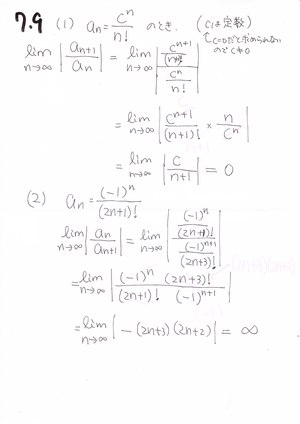 7.9 (1) an = c^n / n! のとき. (cは定数)
↑c=0だと求められないのでc≠0
lim n→∞ |an+1 / an| = lim n→∞ |(c^n+1 / (n+1)!) / (c^n / n!)|
= lim n→∞ |c^n+1 / (n+1)! × n / c^n|
= lim n→∞ |c / n+1| = 0
(2) an = (-1)^n / (2n+1)!
lim n→∞ |an / an+1| = lim n→∞ |((-1)^n / (2n+1)!) / ((-1)^n+1 / (2n+3)!)|
= lim n→∞ |(-1)^n (2n+3)! / (2n+1)! (-1)^n+1|
= lim n→∞ |-(2n+3)(2n+2)| = ∞